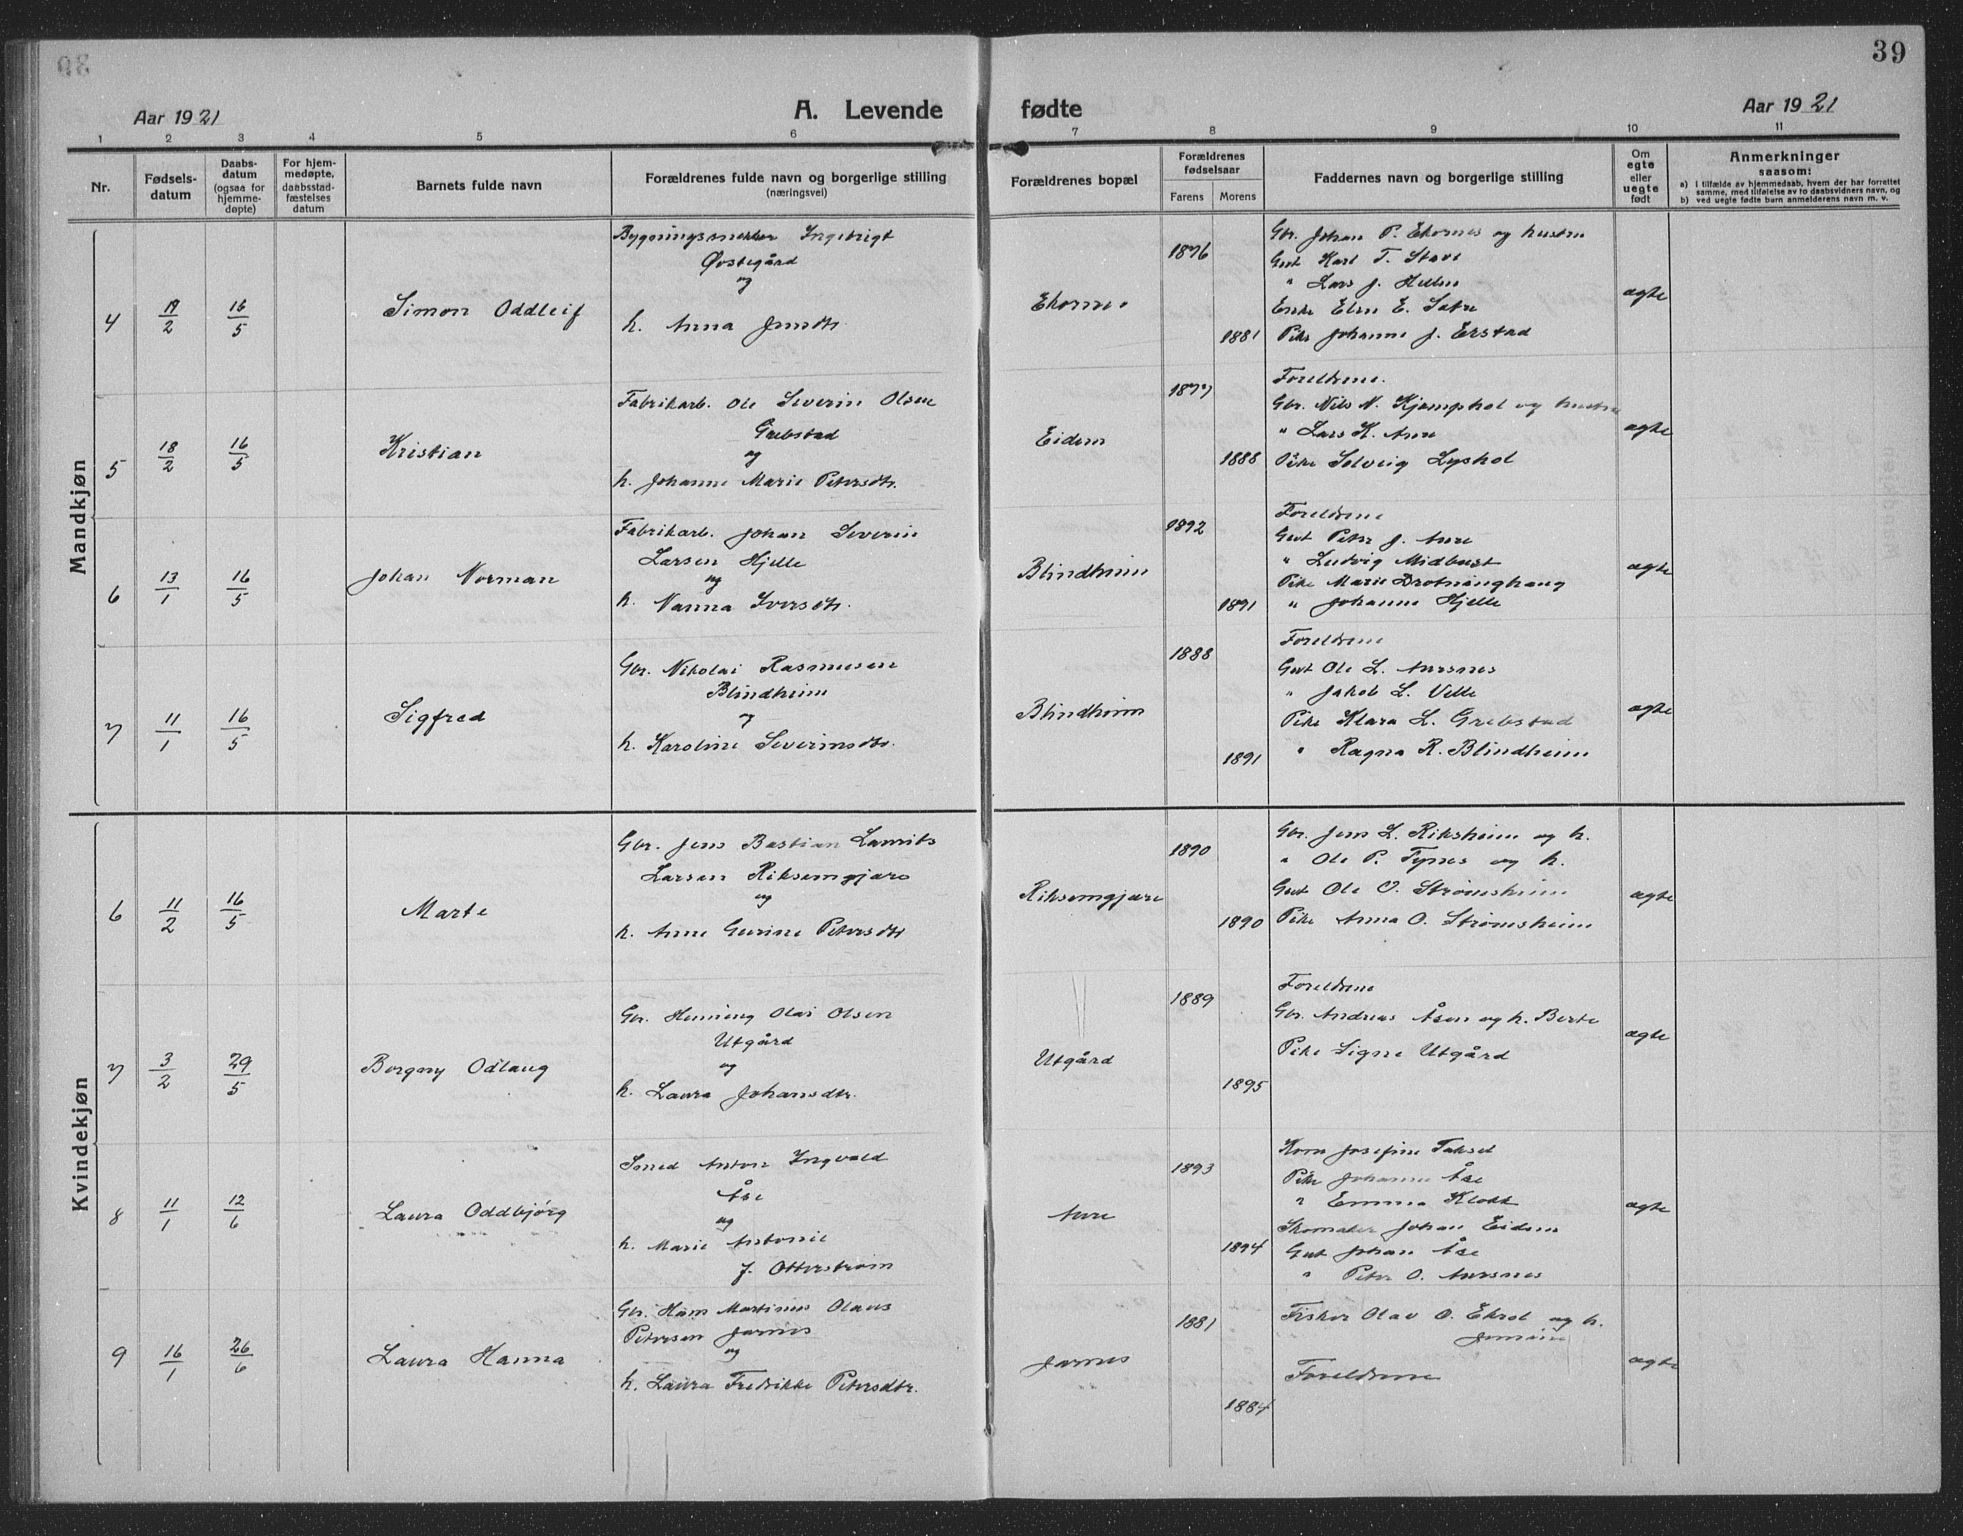 39
Aar 1921
A. Levende fødte
Aar 1921
1 2 3 4 5 6 7 8 9 10 11
Nr.
Fødsels-
datum
Daabs-
datum
(ogsaa for
hjemme-
døpte)
For hjem-
medøpte,
daabsstad-
fæstelses
datum
Barnets fulde navn
Forældrenes fulde navn og borgerlige stilling
(næringsvei)
Forældrenes bopæl
Forældrenes
fødselsaar
Farens Morens
Faddernes navn og borgerlige stilling
Om
egte
eller
uegte
født
Anmerkninger
saasom:
a) i tilfælde av hjemmedaab, hvem der har forrettet
samme, med tilføielse av to daabsvidners navn, og
b) ved uegte fødte barn anmelderens navn m. v.
Mandkjøn
4
19/2
16/5
Simon Oddleif
Bygningssnekker Ingebrigt
Øvstegård
og
h. Anna Jensdtr.
Ekornes
1876
1881
Gbr. Johan P. Ekornes og hustru
Gut Karl T. Stave
" Lars J. Hellen
Enke Elen E. Sætre
Pike Johanne J. Erstad
ægte
5
18/2
16/5
Kristian
Fabrikarb. Ole Severin Olsen
Grebstad
og
h. Johanne Marie Petersdtr.
Eidem
1877
1888
Foreldrene.
Gbr. Nils N. Kjemphol og hustru
" Lars K. Aure
Pike Solveig Lyshol
ægte
6
13/1
16/5
Johan Norman
Fabrikarb. Johan Severin
Larsen Hjelle
og
h. Nanna Iversdtr.
Blindheim
1892
1891
Foreldrene
Gut Peter J. Aure
" Ludvig Midbust
Pike Marie Drotninghaug
" Johanne Hjelle
ægte
7
11/1
16/5
Sigfred
Gbr. Nikolai Rasmusen
Blindheim
og
h. Karoline Severinsdtr.
Blindheim
1888
1891
Foreldrene
Gut Ole L. Aursnes
" Jakob L. Velle
Pike Klara L. Grebstad
" Ragna R. Blindheim
ægte
Kvindekjøn
6
11/2
16/5
Marte
Gbr. Jens Bastian Laurits
Larsen Riksemgjære
og
h. Anne Gurine Petersdtr
Riksemgjære
1890
1890
Gbr. Jens L. Riksheim og h.
" Ole P. Tynes og h.
Gut Ole O. Strømsheim
Pike Anna O. Strømsheim
ægte
7
3/2
29/5
Borgny Odlaug
Gbr. Henning Olai Olsen
Utgård
og
h. Laura Johansdtr.
Utgård
1889
1895
Foreldrene
Gbr. Andreas Åsen og h. Berte
Pike Signe Utgård
ægte
8
11/1
12/6
Laura Oddbjørg
Smed Anton Ingvald
Åse
og
h. Marie Antonie
J. Otterstrøm
Aure
1893
1894
Kone Josefine Taksel
Pike Johanne Åse
" Emma Klokk
Skomaker Johan Eidem
Gut Johan Åse
" Peter O. Aursnes
ægte
9
16/1
26/6
Laura Hanna
Gbr. Hans Martinus Olaus
Petersen Jarnes
og
h. Laura Fredrikke Petersdtr.
Jarnes
1881
1884
Fisker Olav O. Ekrol og h.
Foreldrene
ægte